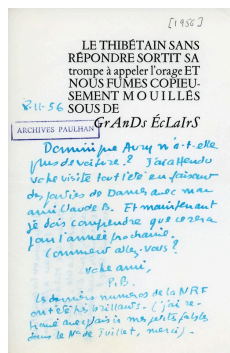 [1956]
LE THIBÉTAIN SANS
RÉPONDRE SORTIT SA
trompe à appeler l'orage ET
NOUS FUMES COPIEU-
SEMENT MOUILLÉS
SOUS DE
GrAnDs ÉcLaIrS
8-11-56
ARCHIVES PAULHAN
Dominique Aury n'a-t-elle
plus de voiture ? J'ai attendu
votre visite tout l'été en faisant
des parties de Dames avec mon
ami Claude B. Et maintenant
je dois comprendre que ce sera
pour l'année prochaine.
Comment allez-vous ?
votre ami,
P.B.
Les derniers numéros de la NRF
ont été très brillants. (j'ai re-
trouvé avec plaisir mes petites fables
dans le N° de Juillet, merci).